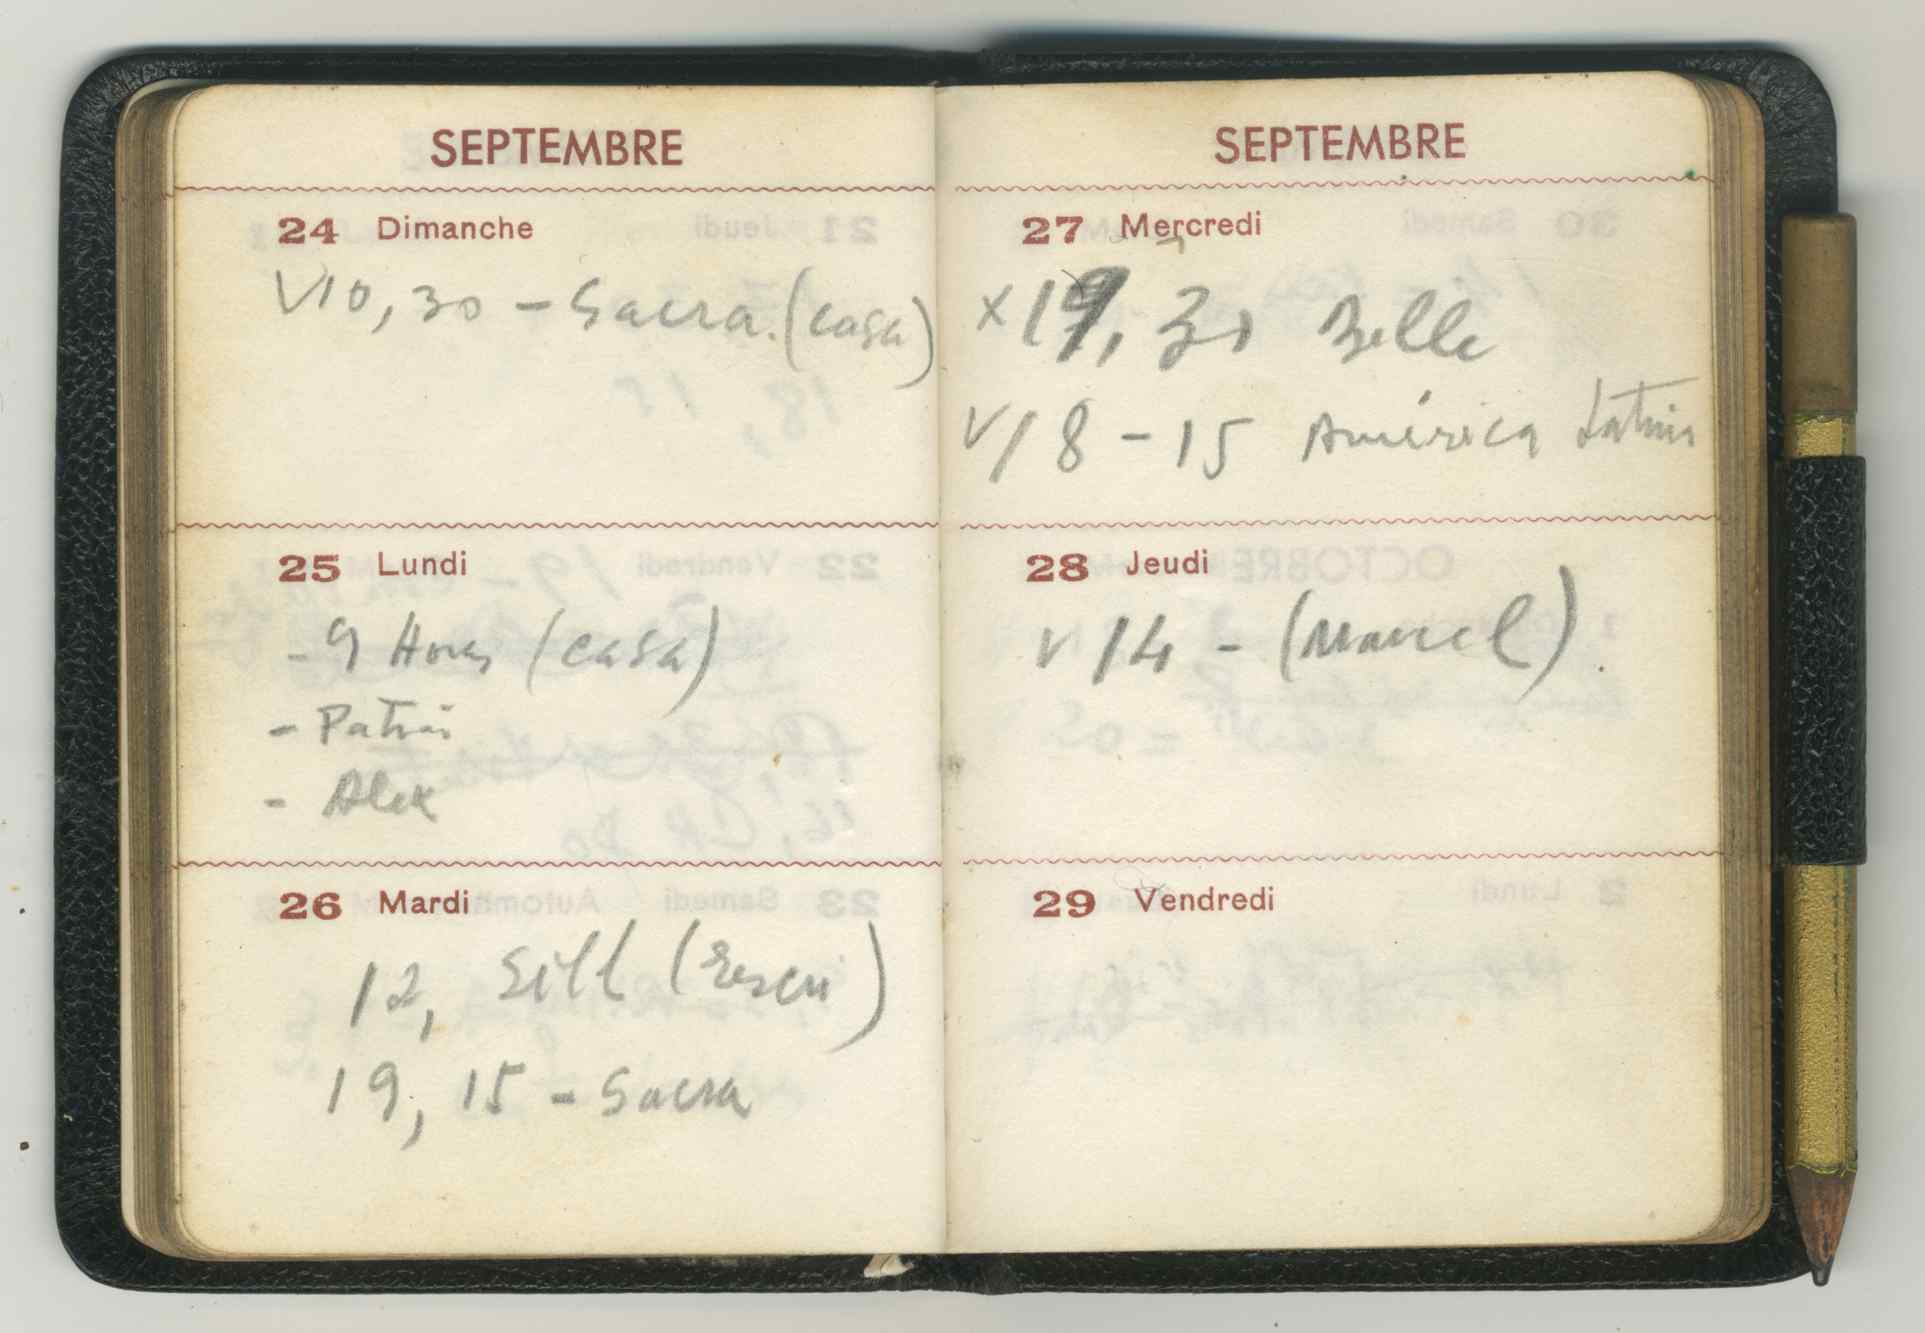 SEPTEMBRE
24 Dimanche
V10,30 - Sacra. (casa)
25 Lundi
- 9 Horas (casa)
-
- Alex
26 Mardi
12,
19, 15 - Sacra
SEPTEMBRE
27 Mercredi
x 19, 30
V18 - 15 América Latina
28 Jeudi
V 14 - (Marcel).
29 Vendredi